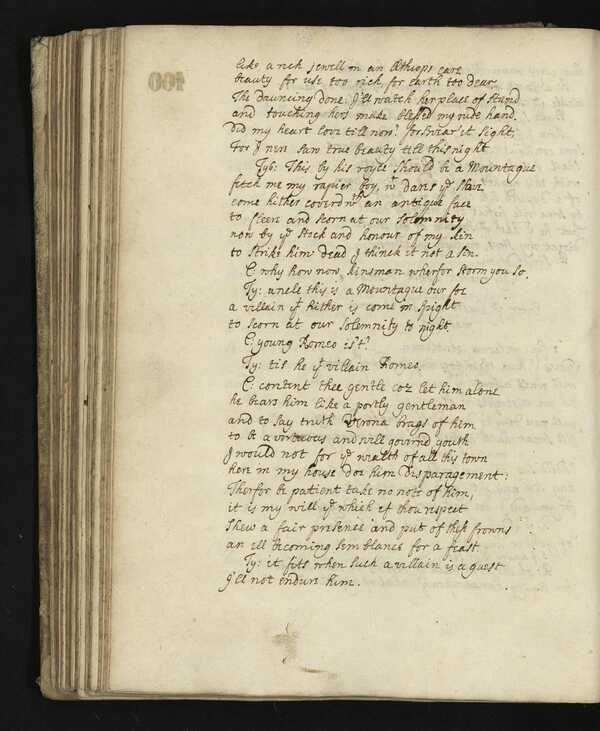 like a rich jewell in an Æthiops eare
beauty for use too rich, for earth too dear.
The dauncing done, I'll watch her place of stand
and touching hers make blessed my rude hand.
Did my heart love till now? forswear it sight;
For I nev'r saw true beauty till this night
Tyb: This by his voyce should be a Mountague
fetch me my rapier boy, wt dares ye slave
come hither coverd wt an antique face
to fleer and scorn at our solemnity
now by ye stock and honour of my kin
to strike him dead I thinck it not a sin.
C. why how now kinsman wherfor storm you so.
Ty: uncle this is a Mountague our foe
a villain yt hither is come in spight
to scorn at our solemnity to night.
C. young Romeo is't?
Ty: tis he yt villain Romeo.
C. content thee gentle coz let him alone
he bears him like a portly gentleman
and to say truth Verona brags of him
to be a virtuous and well governd youth
I would not for ye wealth of all this town
here in my house doe him disparagement:
Therfor be patient take no note of him,
it is my will ye which if thou respect
shew a fair presence and put of these frowns
an ill becoming semblance for a feast
Ty: it fits when such a villain is a guest
I'll not endure him.